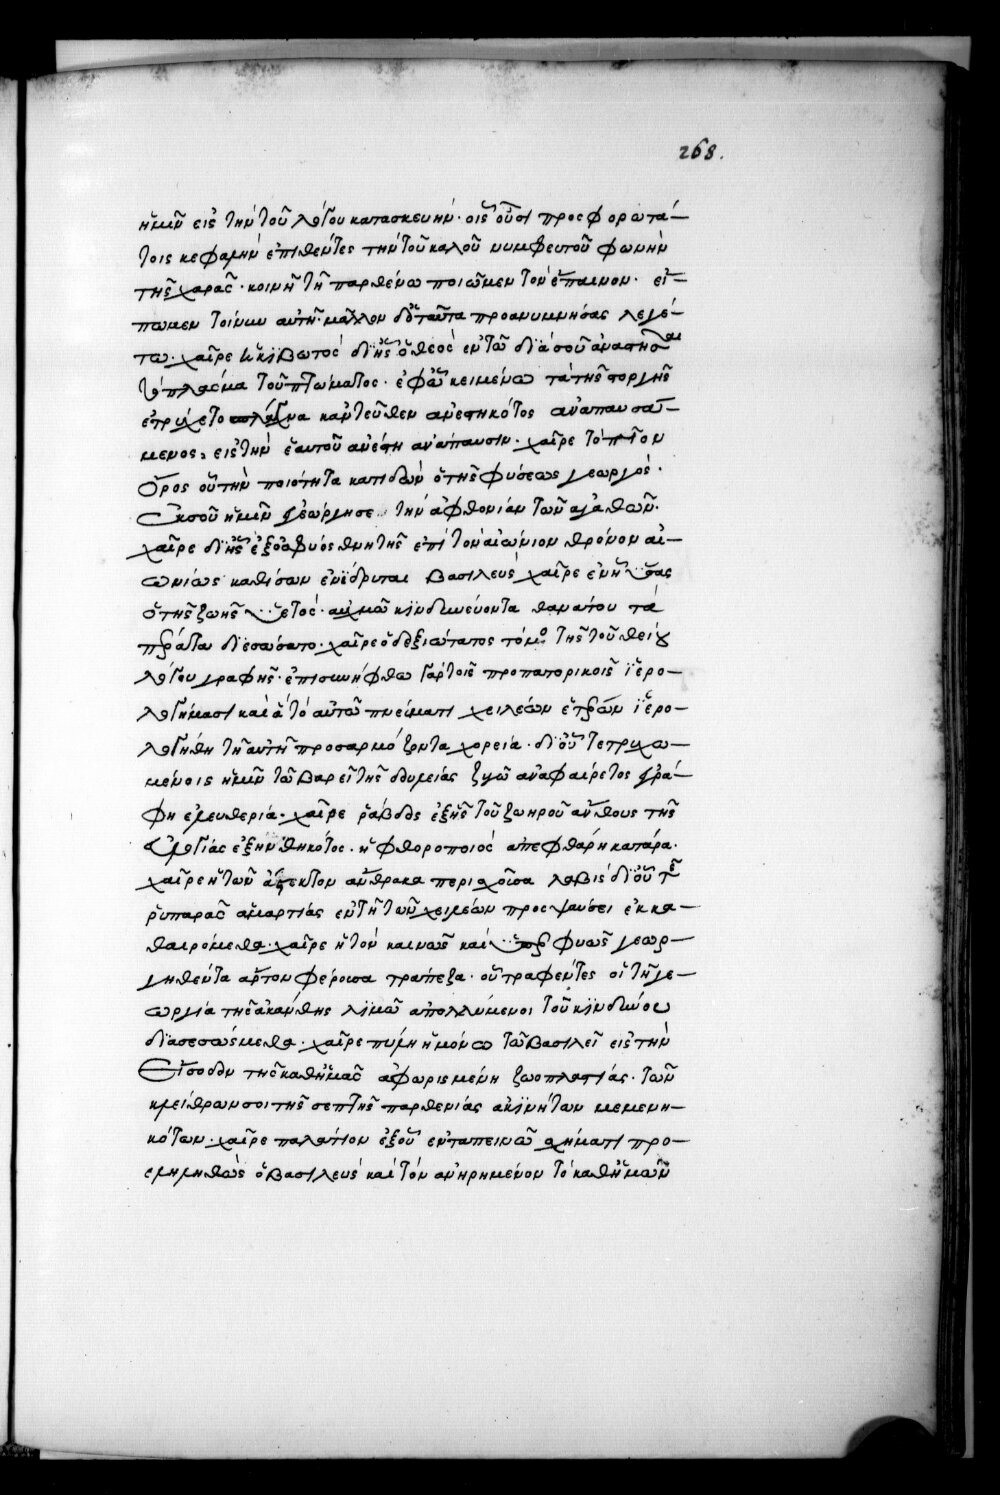 268.
ἡμῖν εἰς τὴν τοῦ λόγου κατασκευήν· οἷς οὖσι προσφορωτά–
τοις κεφαλὴν ἐπιθέντες τὴν τοῦ καλοῦ νυμφευτοῦ φωνὴν
τῆς χαρᾶς· κοινῇ τῇ παρθένω ποιῶμεν τὸν ἔπαινον· εἴ–
πωμεν τοίνυν αὐτῇ· μᾶλλον δὲ ταῦτα προανυμνήσας λεγέ–
τω· χαῖρε ἡ κιβωτός δι' ἧς ὁ θεὸς ἐν τῶ διὰ σοῦ ἀναστῆσαι
τὸ πλάσμα τοῦ πτώματος· ἐφ' ὧ κειμένω τὰ τῆς στοργῆς
ἐτρύχετο σπλάχνα κἀντεῦθεν ἀνεστηκότος ἀναπαυσά–
μενος, εἰς τὴν ἑαυτοῦ ἀνέστη ἀνάπαυσιν· χαῖρε τὸ πῖον
ὄρος οὗ τὴν ποιότητα κατιδὼν ὁ τῆς φύσεως γεωργός·
ἐκ σοῦ ἡμῖν ἐγεώργησε τὴν ἀφθονίαν τῶν ἀγαθῶν·
χαῖρε δι' ἧς ἐξ ὀσφύος θνητῆς ἐπὶ τὸν αἰώνιον θρόνον αἰ–
ωνίως καθίσων ἐνίδρυται βασιλεύς χαῖρε ἐν ᾗ
ὁ τῆς ζωῆς ὑετός· αὐχμῶ κινδυνεύοντα θανάτου τὰ
πρῶτα διεσώσατο· χαῖρε ὁ δεξιώτατος τόμος τῆς τοῦ θείου
λόγου γραφῆς· ἐπισυνήφθω γὰρ τοῖς προπατορικοῖς ἱερο–
λογήμασι καὶ ἃ τὸ αὐτῶ πνεύματι χειλέων ἑτέρων ἱερο–
λογήθη τῇ αὐτῇ προσαρμόζοντα χορεία· δι' οὗ τετρυχω–
μένοις ἡμῖν τῶ βαρεῖ τῆς ἀθυμίας ζυγῶ ἀναφαίρετος ἐγρά–
φη ἐλευθερία· χαῖρε ῥάβδος ἐξ ἧς τοῦ ζωηροῦ ἄνθους τῆς
εὐλογίας ἐξηνθηκότος· ἡ φθοροποιὸς ἀπεφθάρη κατάρα·
χαῖρε ἡ τὸν ἄστεκτον ἄνθρακα περισχοῦσα λαβὶς δι' οὗ τῆς
ῥυπαρᾶς ἁμαρτίας ἐν τῇ τῶν χειλέων προσψαύσει ἐκκα–
θαιρόμεθα· χαῖρε ἡ τὸν καινῶς καὶ φυῶς γεωρ–
γηθέντα ἄρτον φέρουσα τράπεζα· οὗ τραφέντες οἱ τῇ γε–
ωργία τῆς ἀκάνθης λιμῶ ἀπολλύμενοι τοῦ κινδύνου
διασεσώσμεθα· χαῖρε πύλη ἡ μόνω τῶ βασιλεῖ εἰς τὴν
εἴσοδον τῆς καθ' ἡμᾶς ἀφωρισμένη ζωοπλαστίας· τῶν
κλείθρων σοι τῆς σεπτῆς παρθενίας ἀκινήτων μεμενη–
κότων· χαῖρε παλάτιον ἐξ οὗ ἐν ταπεινῶ σχήματι προ–
εληλυθὼς ὁ βασιλεὺς καὶ τὸν ἀνῃρημένον τὸ καθ' ἡμῶν